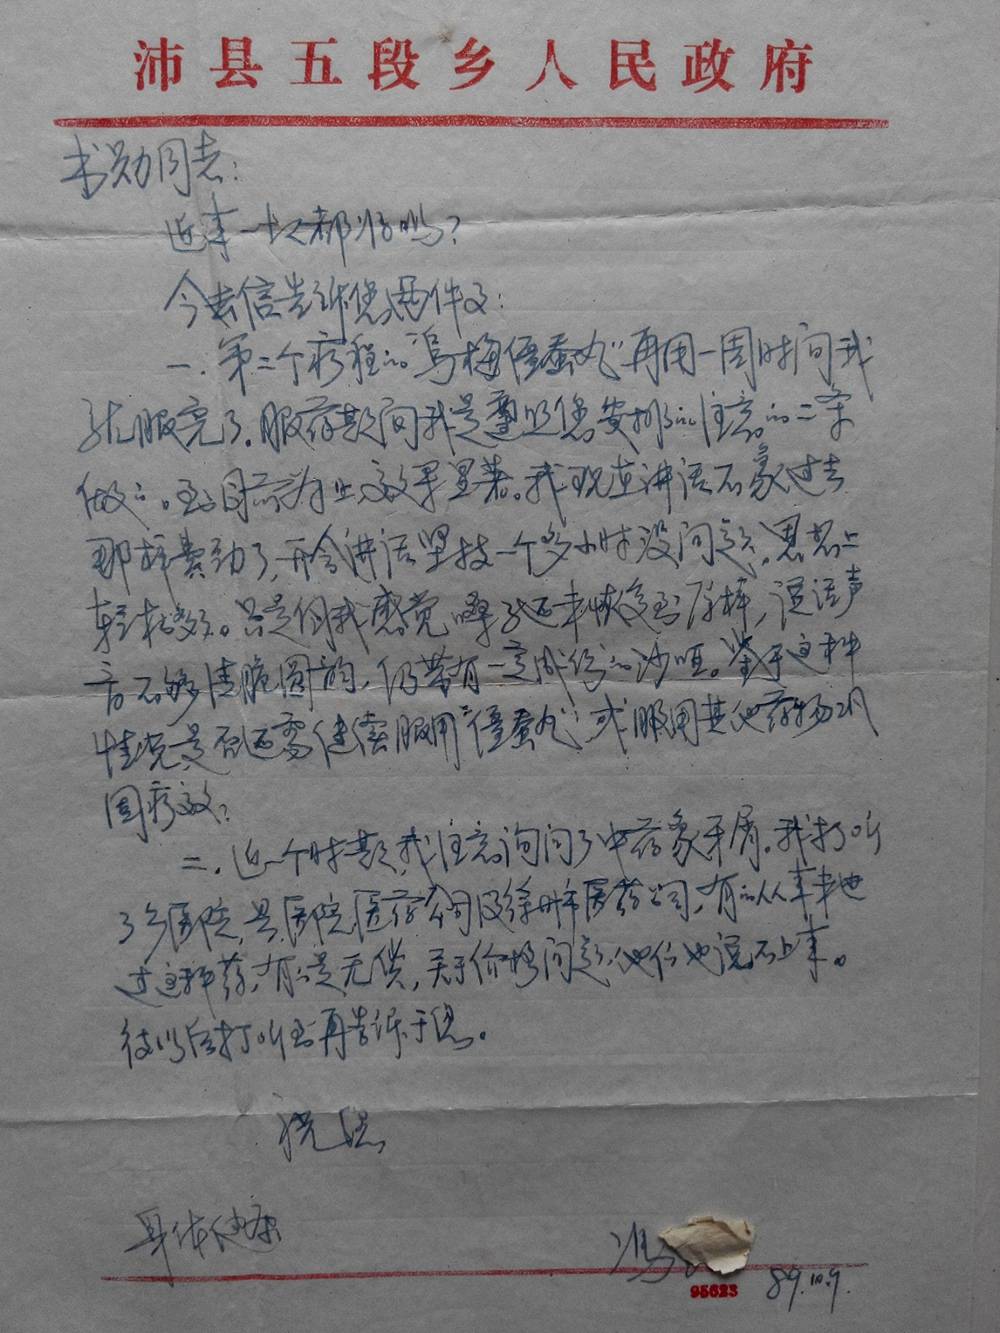 沛县五段乡人民政府
书勋同志：
近来一切都好吗？
今去信告诉您两件事：
一、第二个疗程的"乌梅僵蚕丸"再用一周时间我
就服完了。服药期间我是遵照您安排的注意的二条
做的。到目前为止效果显著。我现在讲话不象过去
那样费劲了，开会讲话坚持一个多小时没问题，思想上
轻松多了。只是何我感觉嗓子还未恢复到原样，说话声
音不够清脆圆韵，仍带有一定成份的沙哑。鉴于这种
情况是否还需继续服用"僵蚕丸"或服用其他药物巩
固疗效？
二、近一个时期，我注意询问了中药象牙屑。我打听
了乡医院、县医院、医药公司及徐州市医药公司，有的从未进
过这种药，有的是无货，关于价格问题，他们也说不上来。
待以后打听到再告诉于您。
祝您
身体健康
冯
95623
89.10.9.